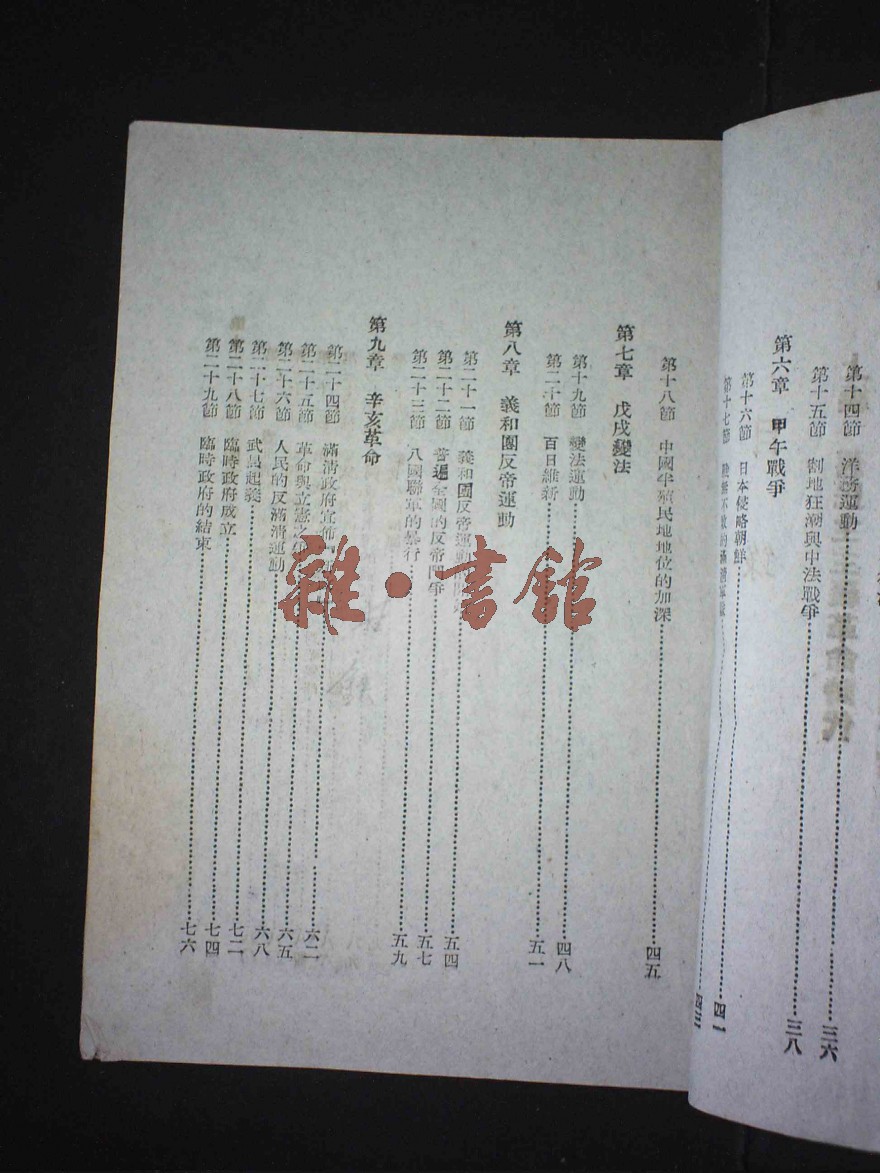 第十四節 洋務運動 三六
第十五節 割地狂潮與中法戰爭 三八
第六章 甲午戰爭
第十六節 日本侵略朝鮮 四一
第十七節
第十八節 中國半殖民地地位的加深 四五
第七章 戊戌變法
第十九節 變法運動 四八
第二十節 百日維新 五一
第八章 義和團反帝運動
第二十一節 義和團反帝運動的 五四
第二十二節 普遍全國的反帝鬥爭 五七
第二十三節 八國聯軍的暴行 五九
第九章 辛亥革命
第二十四節 滿清政府宣佈 六二
第二十五節 革命與立憲之
第二十六節 人民的反滿清運動 六五
第二十七節 武昌起義 六八
第二十八節 臨時政府成立 七二
第二十九節 臨時政府的結束 七四
七六
雜·書館